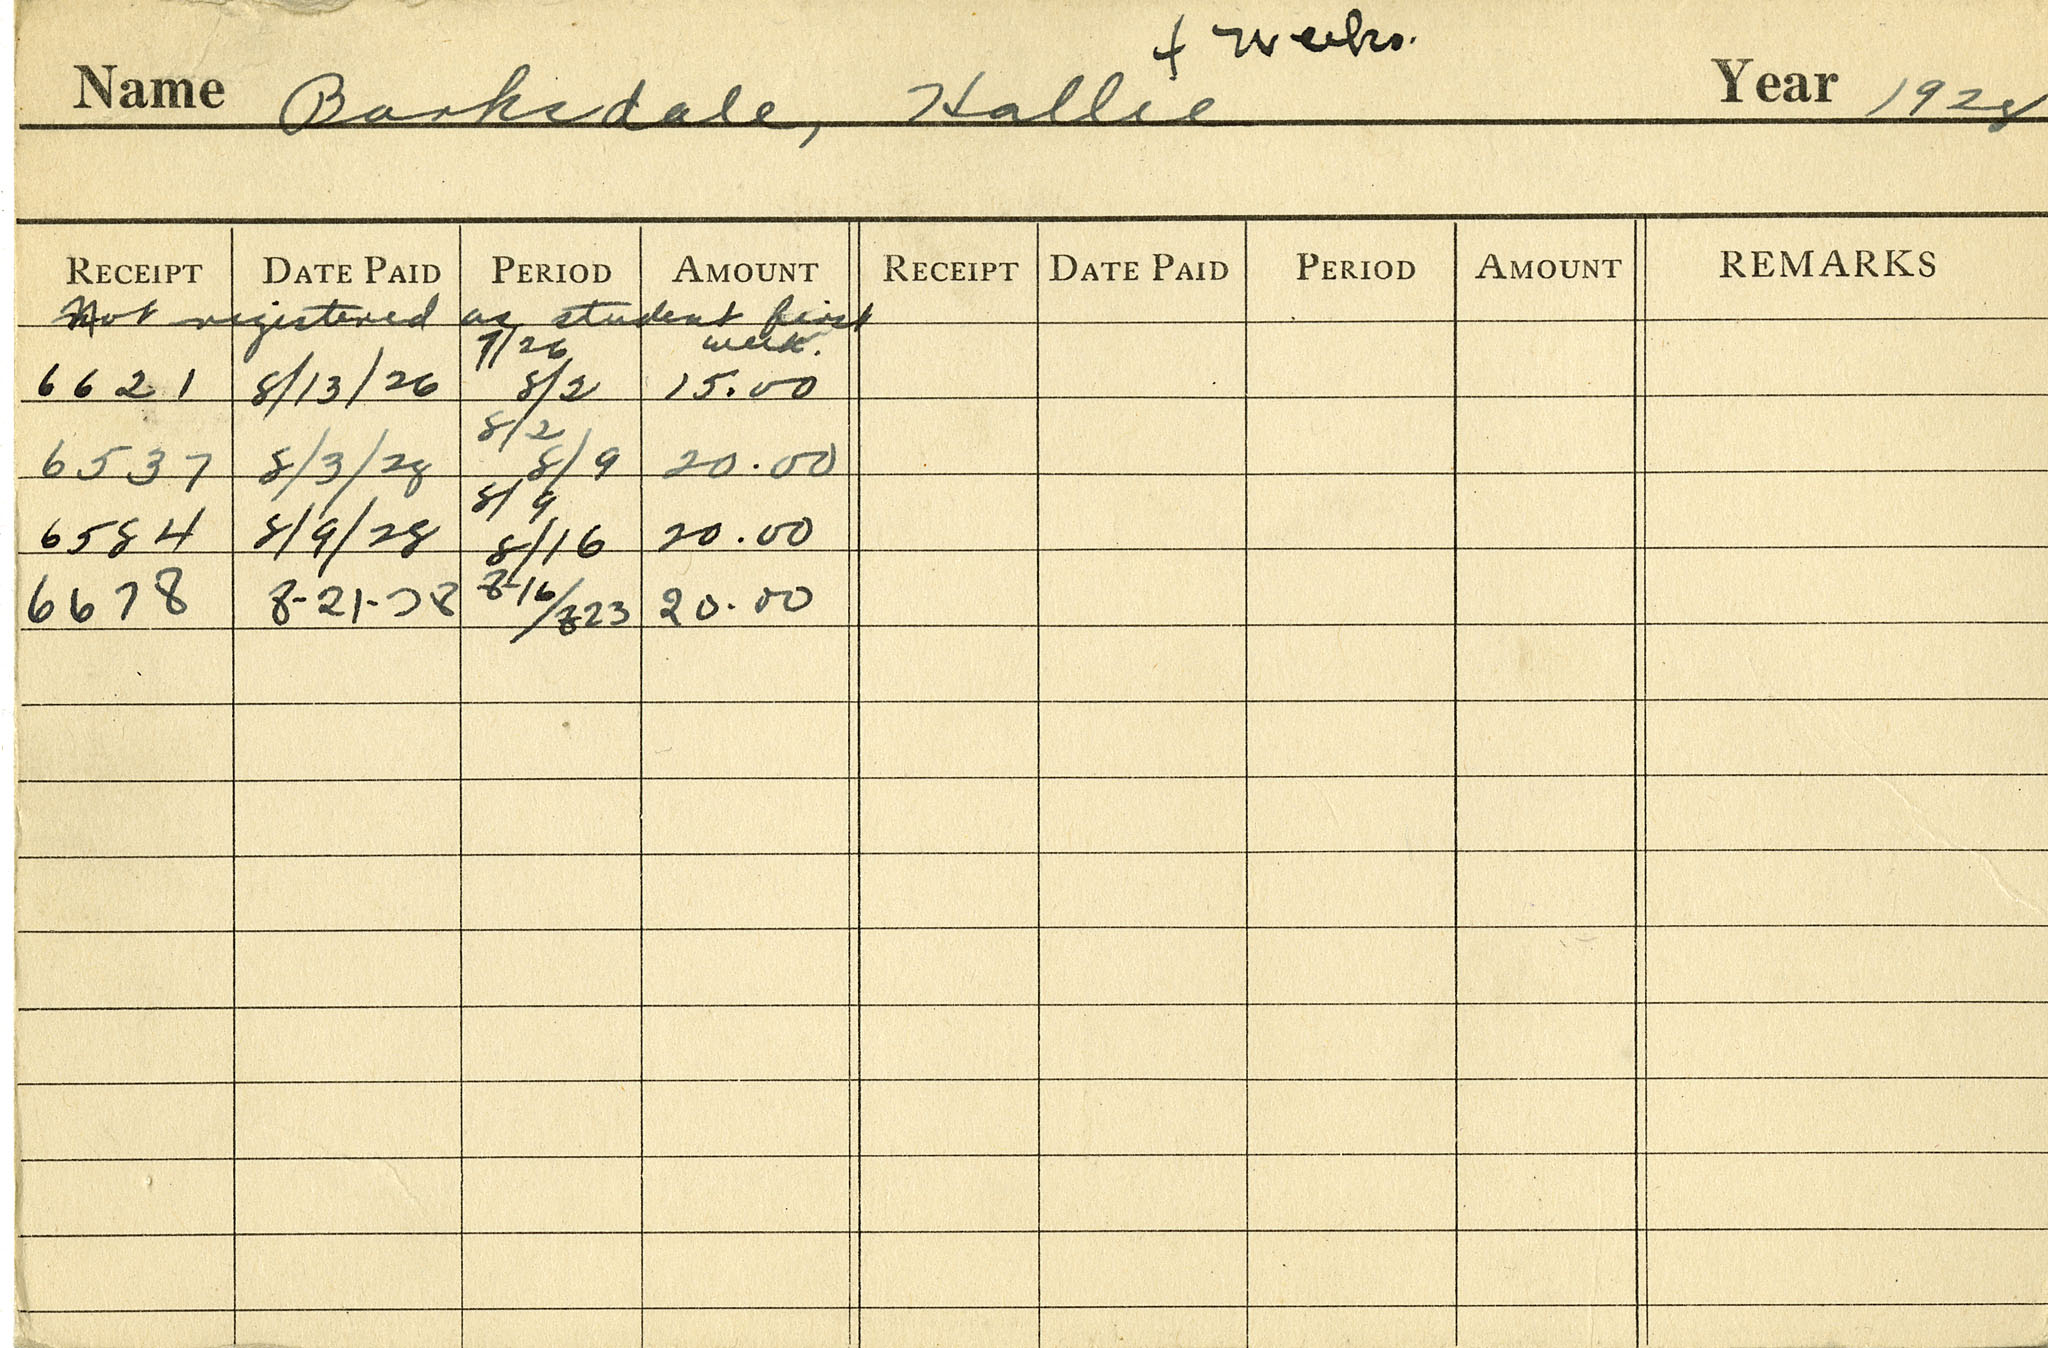 4 Weeks.
Name Barksdale, Hallie Year 1928
RECEIPT DATE PAID PERIOD AMOUNT RECEIPT DATE PAID PERIOD AMOUNT REMARKS
Not registered as student first
7/26 week.
6621 8/13/26 8/2 15.00
8/2
6537 8/3/28 8/9 20.00
8/9
6584 8/9/28 8/16 20.00
6678 8-21-28 8-16/823 20.00